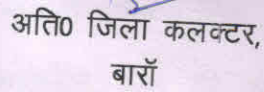 अति0 जिला कलक्टर,
बारॉ